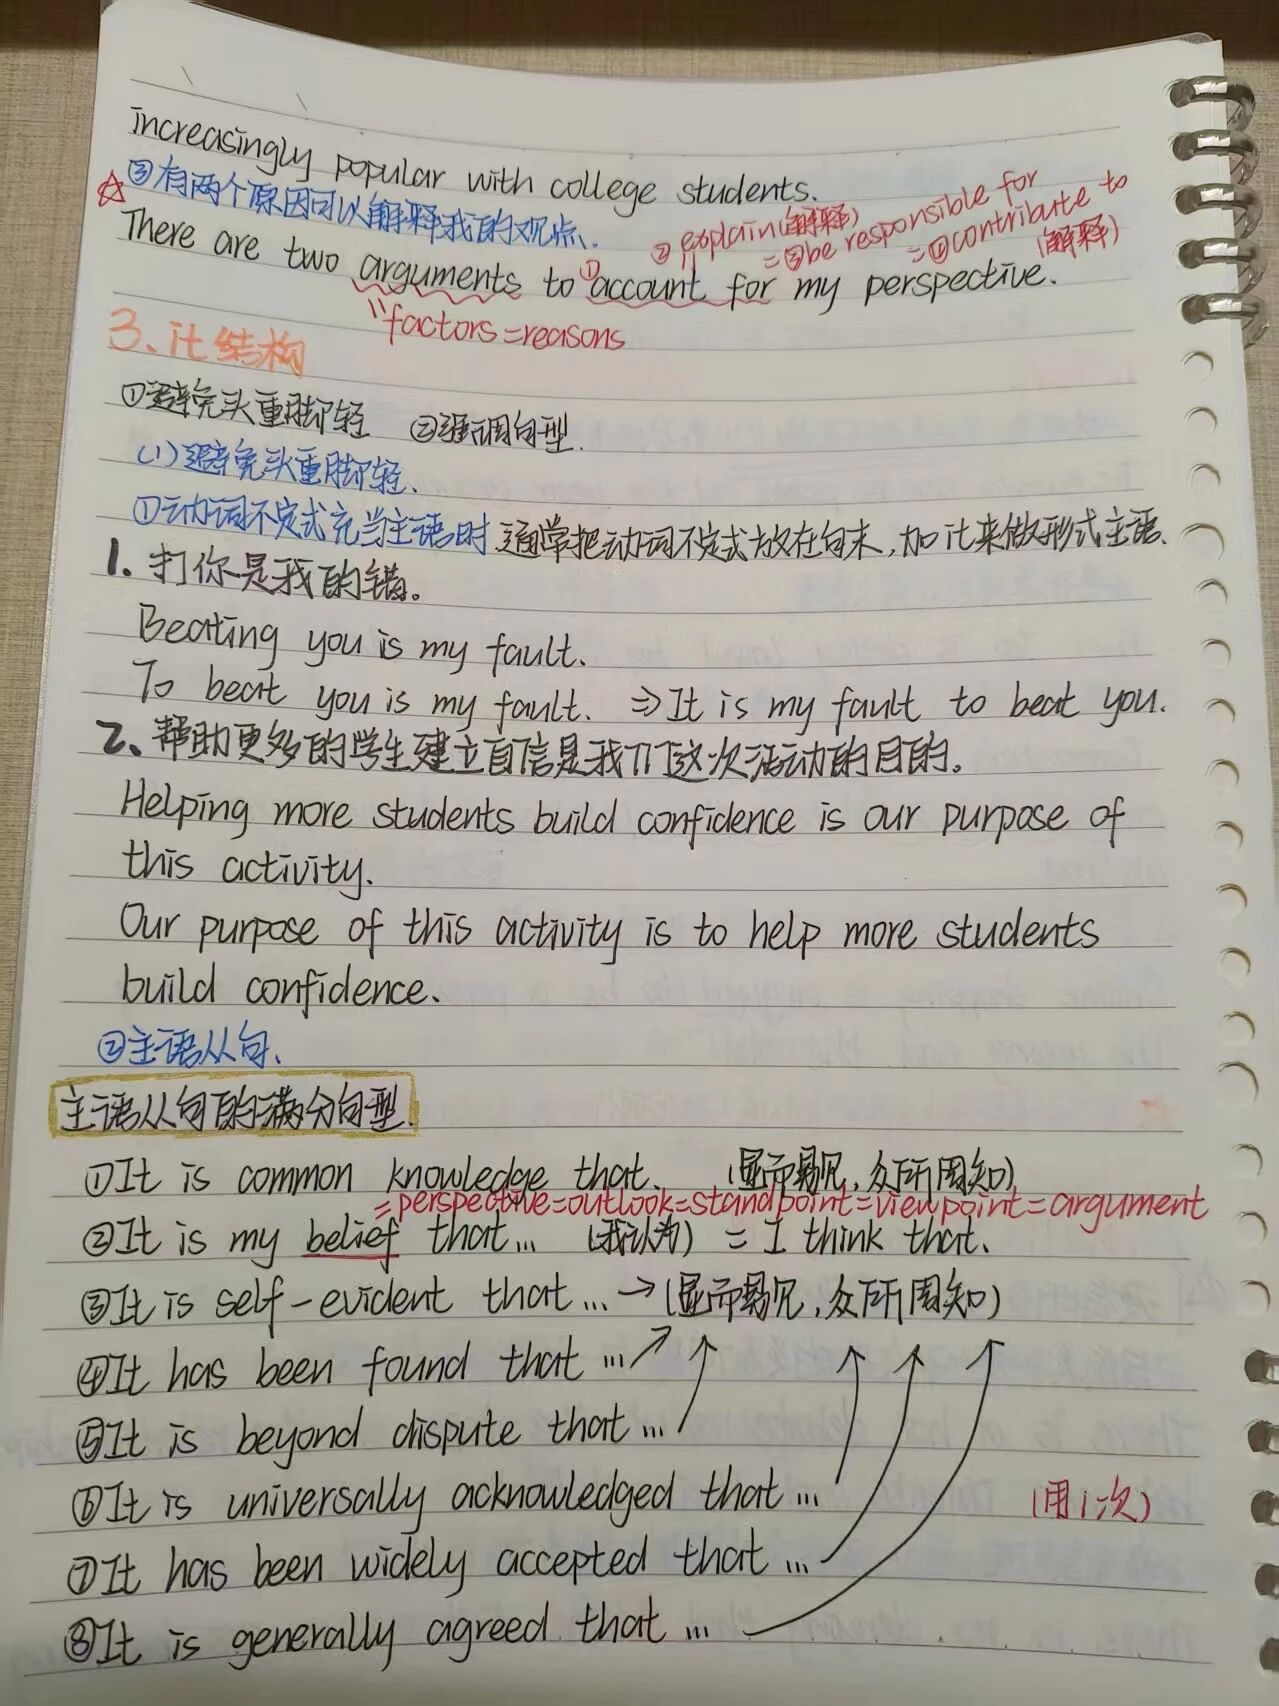 increasingly popular with college students.
☆ ③有两个原因可以解释我的观点.
②explain(解释) =③be responsible for =④contribute to (解释)
There are two arguments to ①account for my perspective.
"factors=reasons
3、it结构
①避免头重脚轻 ②强调句型.
(1)避免头重脚轻.
①动词不定式充当主语时,通常把动词不定式放在句末,加it来做形式主语.
1. 打你是我的错。
Beating you is my fault.
To beat you is my fault. ⇒It is my fault to beat you.
2、帮助更多的学生建立自信是我们这次活动的目的。
Helping more students build confidence is our purpose of
this activity.
Our purpose of this activity is to help more students
build confidence.
②主语从句.
主语从句的满分句型.
①It is common knowledge that. (显而易见,众所周知)
=perspective=outlook=standpoint=viewpoint=argument
②It is my belief that... (我认为) = I think that.
③It is self-evident that...→(显而易见,众所周知)
④It has been found that...
⑤It is beyond dispute that...
⑥It is universally acknowledged that... (用1次)
⑦It has been widely accepted that...
⑧It is generally agreed that...